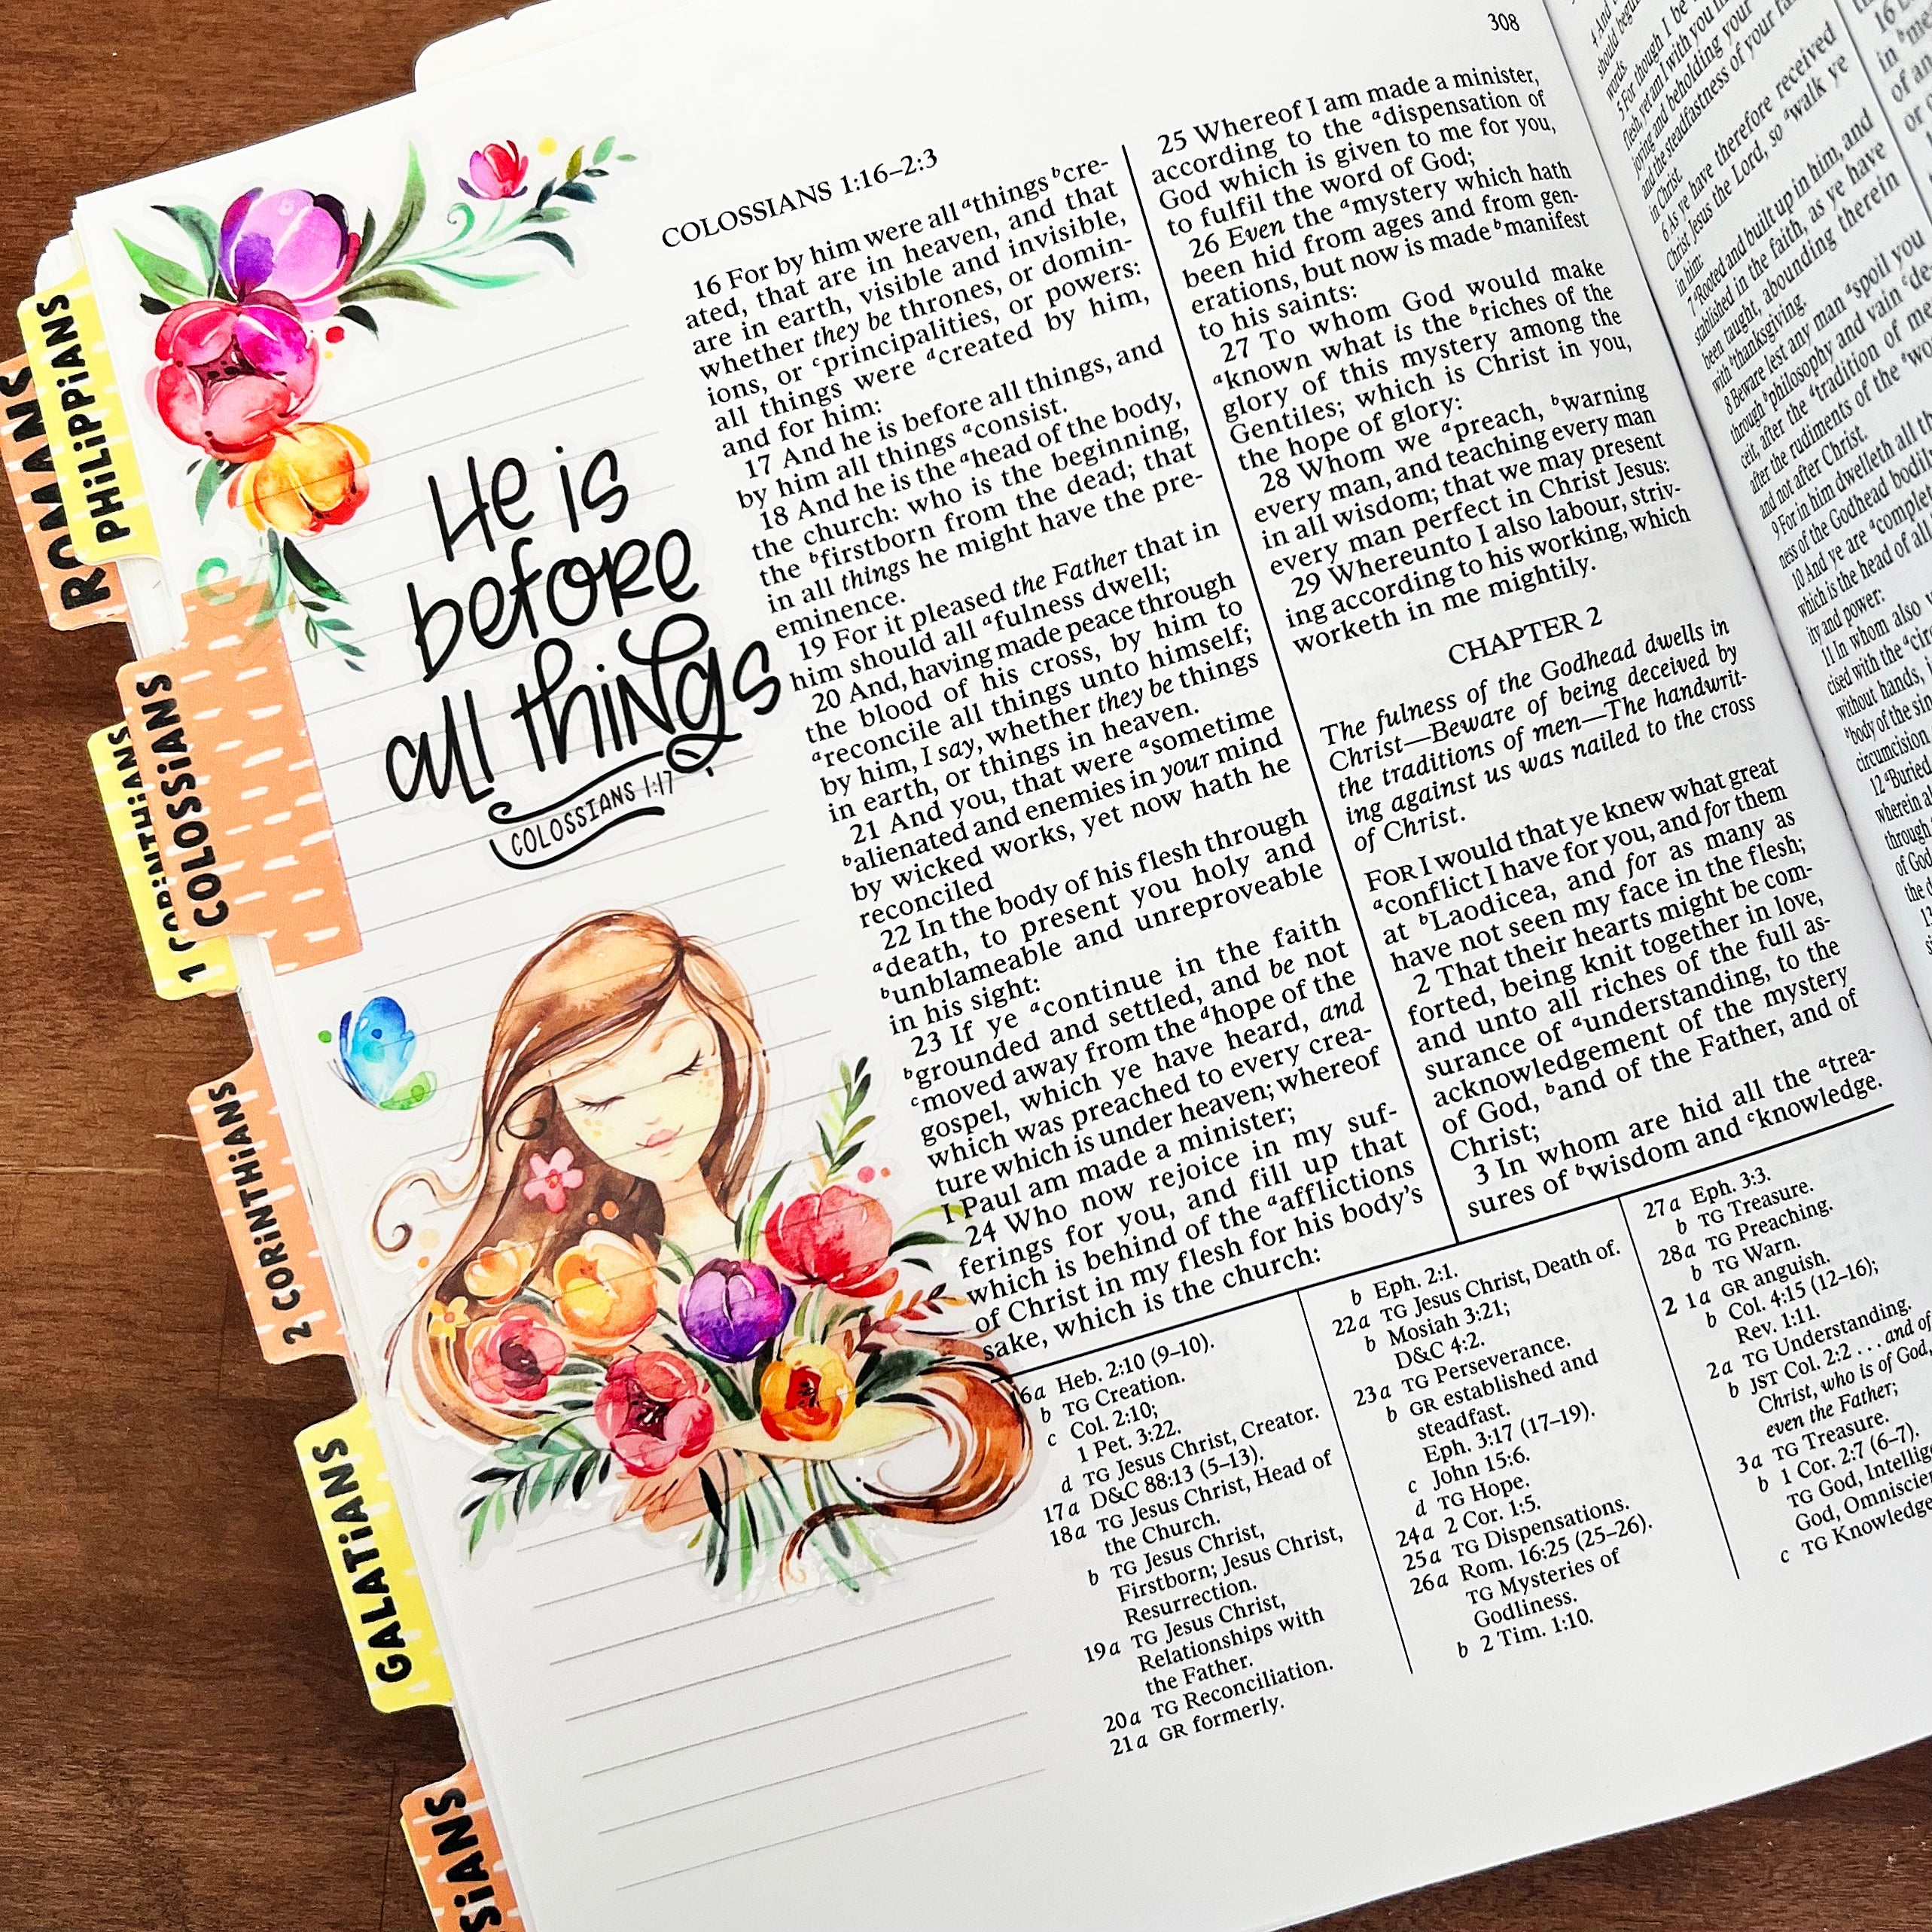 308
COLOSSIANS 1:16–2:3
ROMANS
PHiLiPPiANS
1 CORiNTHiANS
COLOSSiANS
2 CORiNTHiANS
GALATiANS
SiANS
He is
before
all things
COLOSSIANS 1:17
16 For by him were all ᵃthings ᵇcre-
ated, that are in heaven, and that
are in earth, visible and invisible,
whether they be thrones, or domin-
ions, or ᶜprincipalities, or powers:
all things were ᵈcreated by him,
and for him:
17 And he is before all things, and
by him all things ᵃconsist.
18 And he is the ᵃhead of the body,
the church: who is the beginning,
the ᵇfirstborn from the dead; that
in all things he might have the pre-
eminence.
19 For it pleased the Father that in
him should all ᵃfulness dwell;
20 And, having made peace through
the blood of his cross, by him to
ᵃreconcile all things unto himself;
by him, I say, whether they be things
in earth, or things in heaven.
21 And you, that were ᵃsometime
ᵇalienated and enemies in your mind
by wicked works, yet now hath he
reconciled
22 In the body of his flesh through
ᵃdeath, to present you holy and
ᵇunblameable and unreproveable
in his sight:
23 If ye ᵃcontinue in the faith
ᵇgrounded and settled, and be not
ᶜmoved away from the ᵈhope of the
gospel, which ye have heard, and
which was preached to every crea-
ture which is under heaven; whereof
I Paul am made a minister;
24 Who now rejoice in my suf-
ferings for you, and fill up that
which is behind of the ᵃafflictions
of Christ in my flesh for his body's
sake, which is the church:
25 Whereof I am made a minister,
according to the ᵃdispensation of
God which is given to me for you,
to fulfil the word of God;
26 Even the ᵃmystery which hath
been hid from ages and from gen-
erations, but now is made ᵇmanifest
to his saints:
27 To whom God would make
ᵃknown what is the ᵇriches of the
glory of this mystery among the
Gentiles; which is Christ in you,
the hope of glory:
28 Whom we ᵃpreach, ᵇwarning
every man, and teaching every man
in all wisdom; that we may present
every man perfect in Christ Jesus:
29 Whereunto I also labour, striv-
ing according to his working, which
worketh in me mightily.
CHAPTER 2
The fulness of the Godhead dwells in
Christ—Beware of being deceived by
the traditions of men—The handwrit-
ing against us was nailed to the cross
of Christ.
FOR I would that ye knew what great
ᵃconflict I have for you, and for them
at ᵇLaodicea, and for as many as
have not seen my face in the flesh;
2 That their hearts might be com-
forted, being knit together in love,
and unto all riches of the full as-
surance of ᵃunderstanding, to the
acknowledgement of the mystery
of God, ᵇand of the Father, and of
Christ;
3 In whom are hid all the ᵃtrea-
sures of ᵇwisdom and ᶜknowledge.
6a Heb. 2:10 (9–10).
b TG Creation.
c Col. 2:10;
1 Pet. 3:22.
d TG Jesus Christ, Creator.
17a D&C 88:13 (5–13).
18a TG Jesus Christ, Head of
the Church.
b TG Jesus Christ,
Firstborn; Jesus Christ,
Resurrection.
19a TG Jesus Christ,
Relationships with
the Father.
20a TG Reconciliation.
21a GR formerly.
b Eph. 2:1.
22a TG Jesus Christ, Death of.
b Mosiah 3:21;
D&C 4:2.
23a TG Perseverance.
b GR established and
steadfast.
Eph. 3:17 (17–19).
c John 15:6.
d TG Hope.
24a 2 Cor. 1:5.
25a TG Dispensations.
26a Rom. 16:25 (25–26).
TG Mysteries of
Godliness.
b 2 Tim. 1:10.
27a Eph. 3:3.
b TG Treasure.
28a TG Preaching.
b TG Warn.
2 1a GR anguish.
b Col. 4:15 (12–16);
Rev. 1:11.
2a TG Understanding.
b JST Col. 2:2 . . . and of
Christ, who is of God,
even the Father;
3a TG Treasure.
b 1 Cor. 2:7 (6–7).
TG God, Intellig
God, Omniscien
c TG Knowledge
4 And
should begu
words.
5 For though I be
flesh, yet am I with you in
joying and beholding your
and the steadfastness of your fa
in Christ.
6 As ye have therefore received
Christ Jesus the Lord, so ᵃwalk ye
in him:
7 ᵃRooted and built up in him, and
stablished in the faith, as ye have
been taught, abounding therein
with ᵇthanksgiving.
8 Beware lest any man ᵃspoil you
through ᵇphilosophy and vain ᶜde-
ceit, after the ᵈtradition of me
after the rudiments of the ᵉwo
and not after Christ.
9 For in him dwelleth all th
ness of the Godhead bodily
10 And ye are ᵃcomple
which is the head of all
ity and power:
11 In whom also y
cised with the ᵃcir
without hands, i
ᵇbody of the sin
circumcision
12 ᵃBuried
wherein al
through
of God
the d